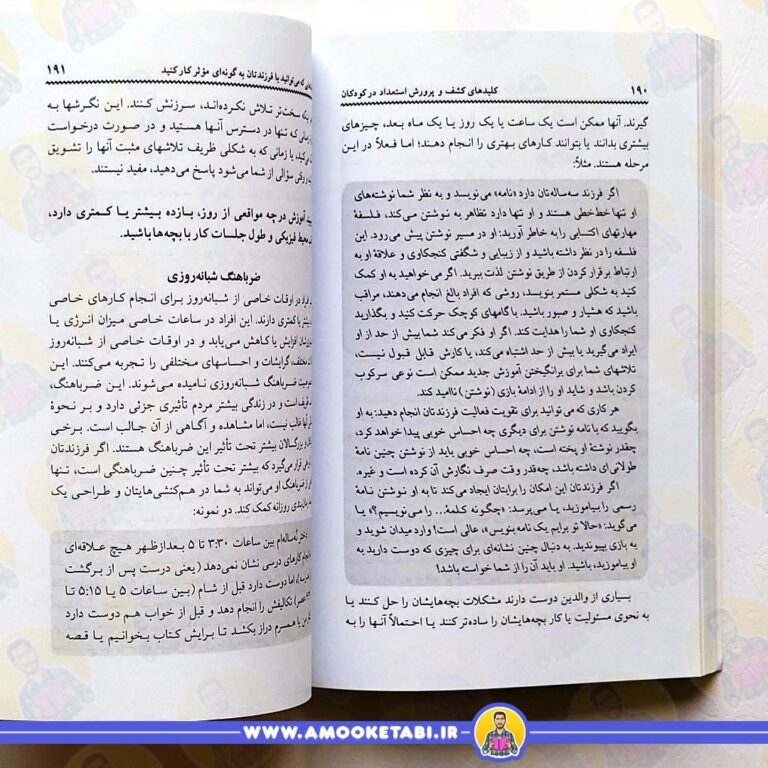 ۱۹۰ کلیدهای کشف و پرورش استعداد در کودکان
گیرند. آنها ممکن است یک ساعت یا یک روز یا یک ماه بعد، چیزهای
بیشتری بدانند یا بتوانند کارهای بهتری را انجام دهند؛ اما فعلاً در این
مرحله هستند. مثلاً:
اگر فرزند سه‌ساله‌تان دارد «نامه» می‌نویسد و به نظر شما نوشته‌های
او تنها خط‌خطی هستند و او تنها دارد تظاهر به نوشتن می‌کند، فلسفهٔ
مهارتهای اکتسابی را به خاطر آورید: او در مسیر نوشتن پیش می‌رود. این
فلسفه را در نظر داشته باشید و از زیبایی و شگفتی کنجکاوی و علاقهٔ او به
ارتباط برقرار کردن از طریق نوشتن لذت ببرید. اگر می‌خواهید به او کمک
کنید به شکلی مستمر بنویسد، روشی که افراد بالغ انجام می‌دهند، مراقب
باشید که هشیار و صبور باشید. با گامهای کوچک حرکت کنید و بگذارید
کنجکاوی او شما را هدایت کند. اگر او فکر می‌کند شما بیش از حد از او
ایراد می‌گیرید یا بیش از حد اشتباه می‌کند، یا کارش قابل قبول نیست،
تلاشهای شما برای برانگیختن آموزش جدید ممکن است نوعی سرکوب
کردن باشد و شاید او را از ادامهٔ بازی (نوشتن) ناامید کند.
هر کاری که می‌توانید برای تقویت فعالیت فرزندتان انجام دهید: به او
بگویید که با نامه نوشتن برای دیگری چه احساس خوبی پیدا خواهد کرد،
چقدر نوشتهٔ او پخته است، چه احساس خوبی باید از نوشتن چنین نامهٔ
طولانی‌ای داشته باشد، چه‌قدر وقت صرف نگارش آن کرده است و غیره.
اگر فرزندتان این امکان را برایتان ایجاد می‌کند تا به او نوشتن نامهٔ
رسمی را بیاموزید، یا می‌پرسد: «چگونه کلمهٔ... را می‌نویسیم؟» یا
می‌گوید: «حالا تو برایم یک نامه بنویس»، عالی است! وارد میدان شوید و
به بازی بپیوندید. به دنبال چنین نشانه‌ای برای چیزی که دوست دارید به
او بیاموزید، باشید. او باید آن را از شما خواسته باشد!
بسیاری از والدین دوست دارند مشکلات بچه‌هایشان را حل کنند یا
به نحوی مسئولیت یا کار بچه‌هایشان را ساده‌تر کنند یا احتمالاً آنها را به
که می‌توانید با فرزندتان به گونه‌ای مؤثر کار کنید ۱۹۱
سخت‌تر تلاش نکرده‌اند، سرزنش کنند. این نگرشها به
که تنها در دسترس آنها هستید و در صورت درخواست
یا زمانی که به شکلی ظریف تلاشهای مثبت آنها را تشویق
وقتی سؤالی از شما می‌شود پاسخ می‌دهید، مفید نیستند.
آموزش در چه مواقعی از روز، بازده بیشتر یا کمتری دارد،
محیط فیزیکی و طول جلسات کار با بچه‌ها باشید.
ضرباهنگ شبانه‌روزی
در اوقات خاصی از شبانه‌روز برای انجام کارهای خاصی
یا کمتری دارند. این افراد در ساعات خاصی میزان انرژی یا
افزایش یا کاهش می‌یابد و در اوقات خاصی از شبانه‌روز
گرایشات و احساسهای مختلفی را تجربه می‌کنند. این
ضرباهنگ شبانه‌روزی نامیده می‌شوند. این ضرباهنگ،
است و در زندگی بیشتر مردم تأثیری جزئی دارد و بر نحوهٔ
غالب نیست، اما مشاهده و آگاهی از آن جالب است. برخی
بزرگسالان بیشتر تحت تأثیر این ضرباهنگ هستند. اگر فرزندتان
قرار می‌گیرد که بیشتر تحت تأثیر چنین ضرباهنگی است، تنها
ضرباهنگ او می‌تواند به شما در هم‌کنشی‌هایتان و طراحی یک
روزانه کمک کند. دو نمونه:
دختر نُه‌ساله‌ام بین ساعات ۳:۳۰ تا ۵ بعدازظهر هیچ علاقه‌ای
انجام کارهای درسی نشان نمی‌دهد (یعنی درست پس از برگشت
اما دوست دارد قبل از شام (بین ساعات ۵ یا ۵:۱۵ تا
تکالیفش را انجام دهد و قبل از خواب هم دوست دارد
من یا همسرم دراز بکشد تا برایش کتاب بخوانیم یا قصه
WWW.AMOOKETABI.IR